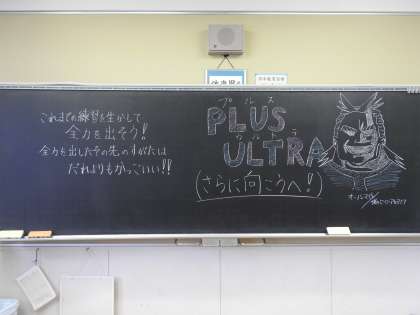 これまでの練習を生かして
全力を出そう!
全力を出したその先のすがたは
だれよりもかっこいい!!
プルス
PLUS
ウルトラ
ULTRA
(さらに向こうへ!)
オールマイト